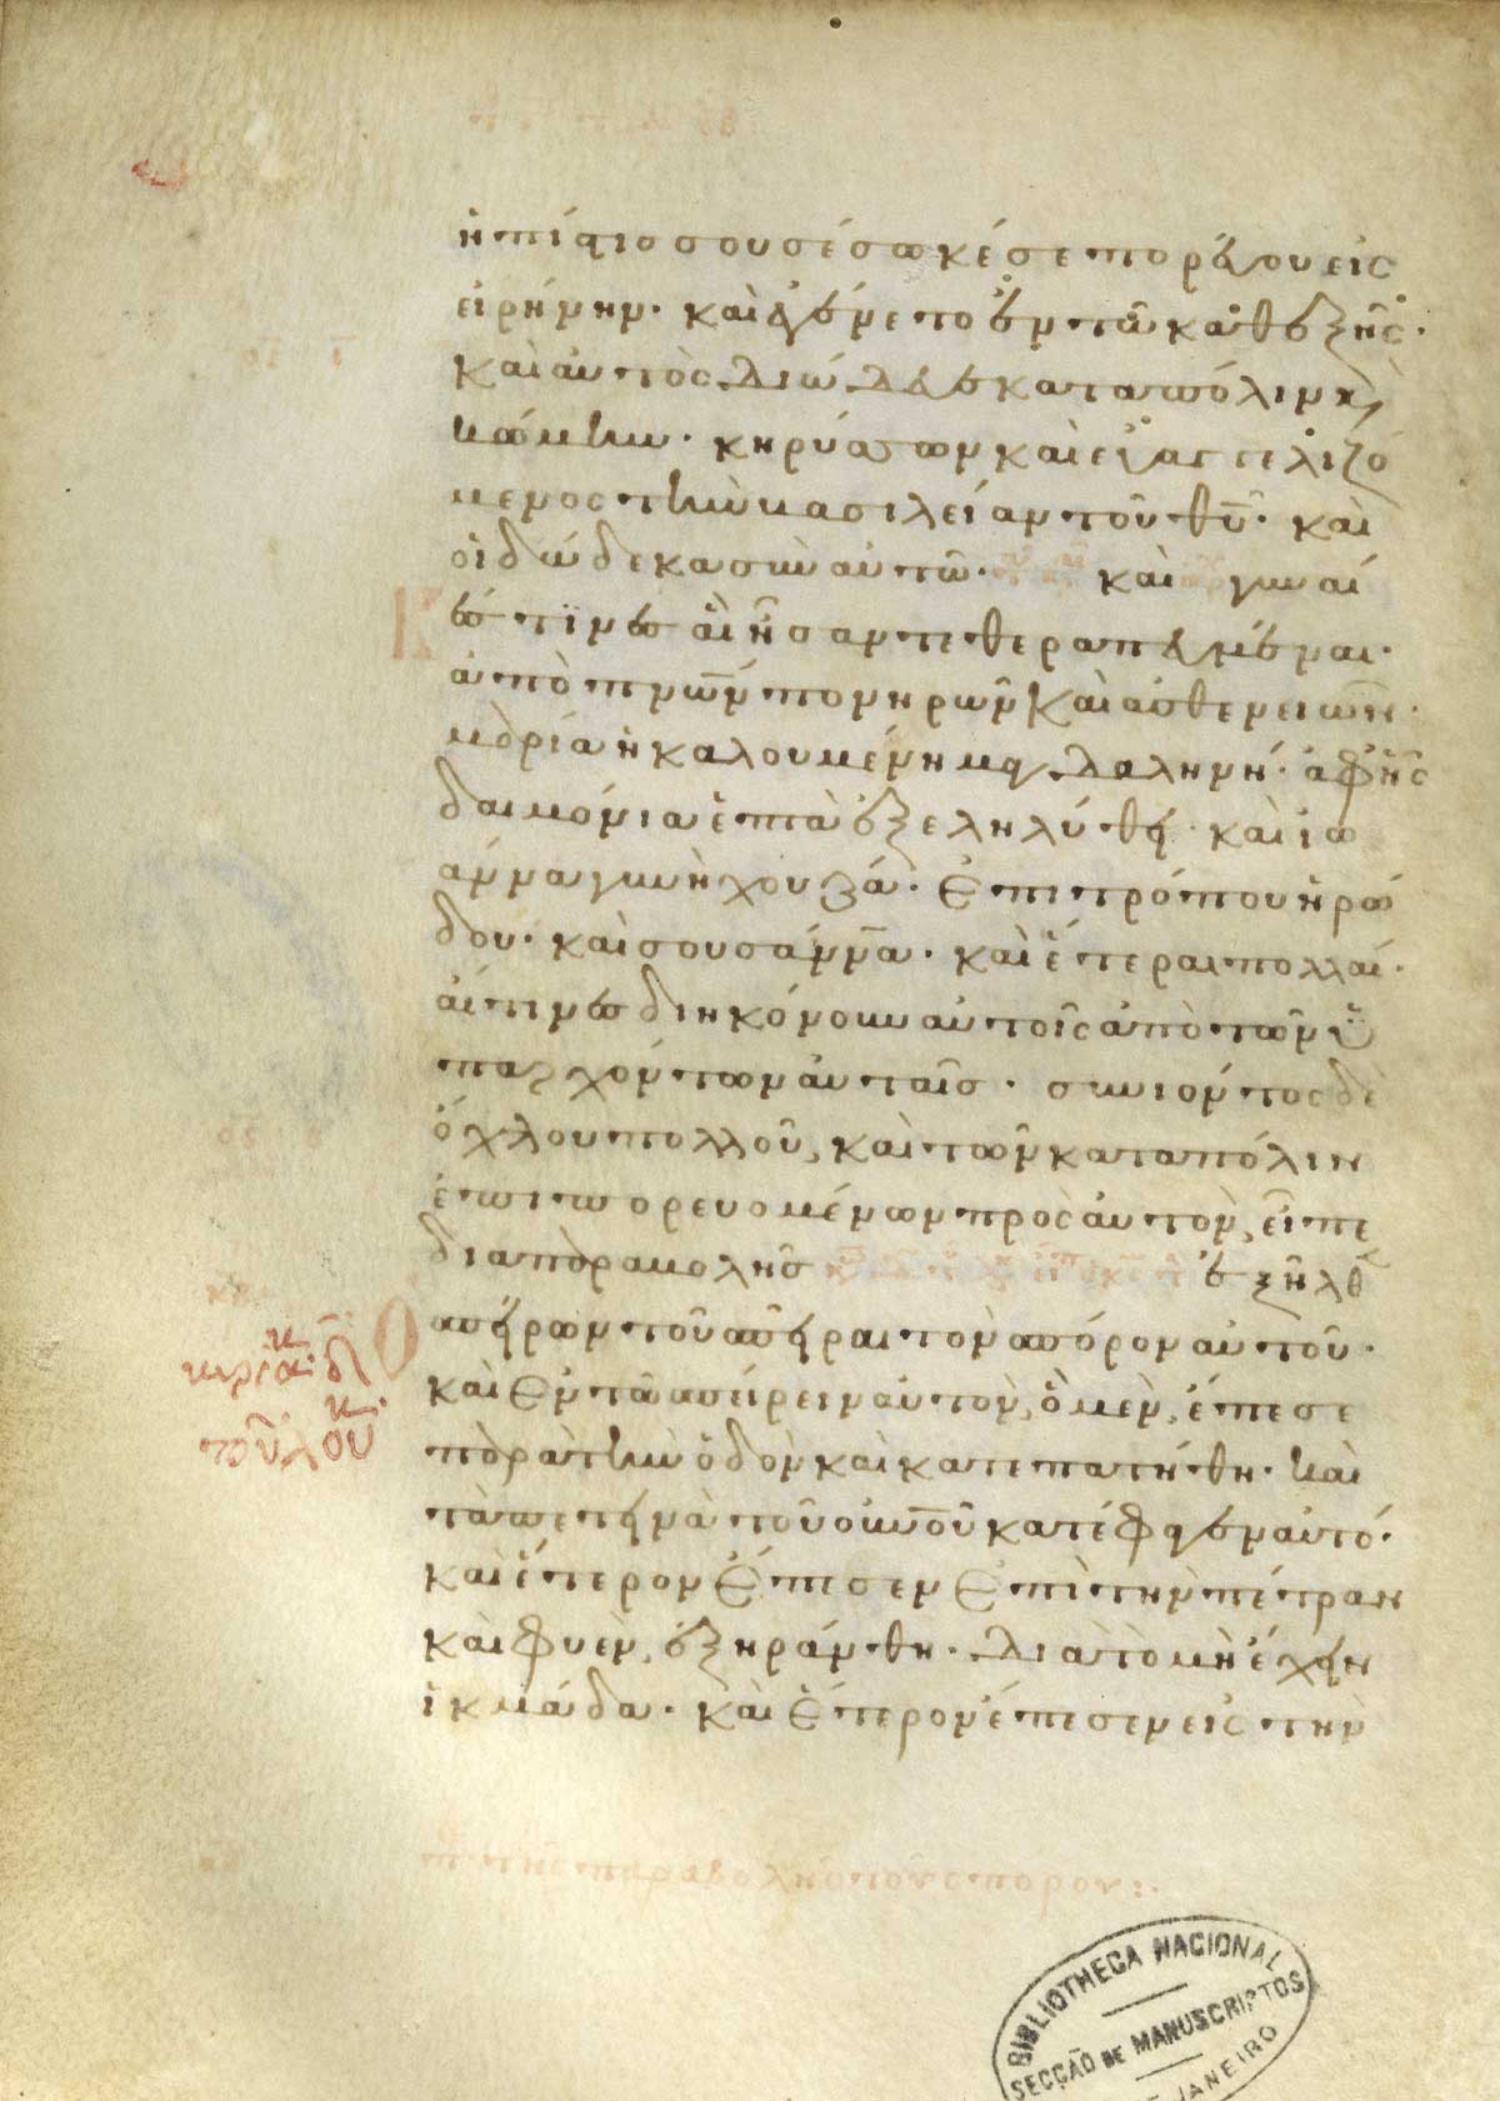 ἡ πίστις σου σέσωκέ σε πορεύου εἰς
εἰρήνην· καὶ ἐγένετο ἐν τῶ καθεξῆς·
καὶ αὐτὸς διώδευε κατὰ πόλιν κ(αὶ)
κώμην· κηρύσσων καὶ εὐαγγελιζό
μενος τὴν βασιλείαν τοῦ θυ̅· καὶ
οἱ δώδεκα σὺν αὐτῶ· καὶ γυναῖ
κές τινες αἳ ἦσαν τεθεραπευμέναι·
ἀπὸ πνω̅ν πονηρῶν καὶ ἀσθενειῶν·
μαρία ἡ καλουμένη μαγδαληνή· ἀφ' ἧς
δαιμόνια ἑπτὰ ἐξεληλύθει· καὶ ἰω
άννα γυνὴ χουζᾶ· ἐπιτρόπου ἡρώ
δου· καὶ σουσάννα· καὶ ἕτεραι πολλαί·
αἵτινες διηκόνουν αὐτοῖς ἀπὸ τῶν ὑ
παρχόντων αὐταῖς· συνιόντος δὲ
ὄχλου πολλοῦ, καὶ τῶν κατὰ πόλιν
ἐπιπορευομένων πρὸς αὐτὸν, εἶπε
διὰ παραβολῆς ἐξῆλθ(εν)
Ο σπείρων τοῦ σπεῖραι τὸν σπόρον αὐτοῦ·
καὶ ἐν τῶ σπείρειν αὐτὸν, ὃ μὲν, ἔπεσε
παρὰ τὴν ὁδὸν καὶ κατεπατήθη· καὶ
τὰ πετεινὰ τοῦ ουνου̅ κατέφαγεν αὐτό·
καὶ ἕτερον ἔπεσεν ἐπὶ τὴν πέτραν
καὶ φυὲν, ἐξηράνθη· διὰ τὸ μὴ ἔχειν
ἰκμάδα· καὶ ἕτερον ἔπεσεν εἰς τὴν
τῆς παραβολῆς τοῦ σπόρου:·
BIBLIOTHECA NACIONAL
SECÇÃO DE MANUSCRIPTOS
JANEIRO